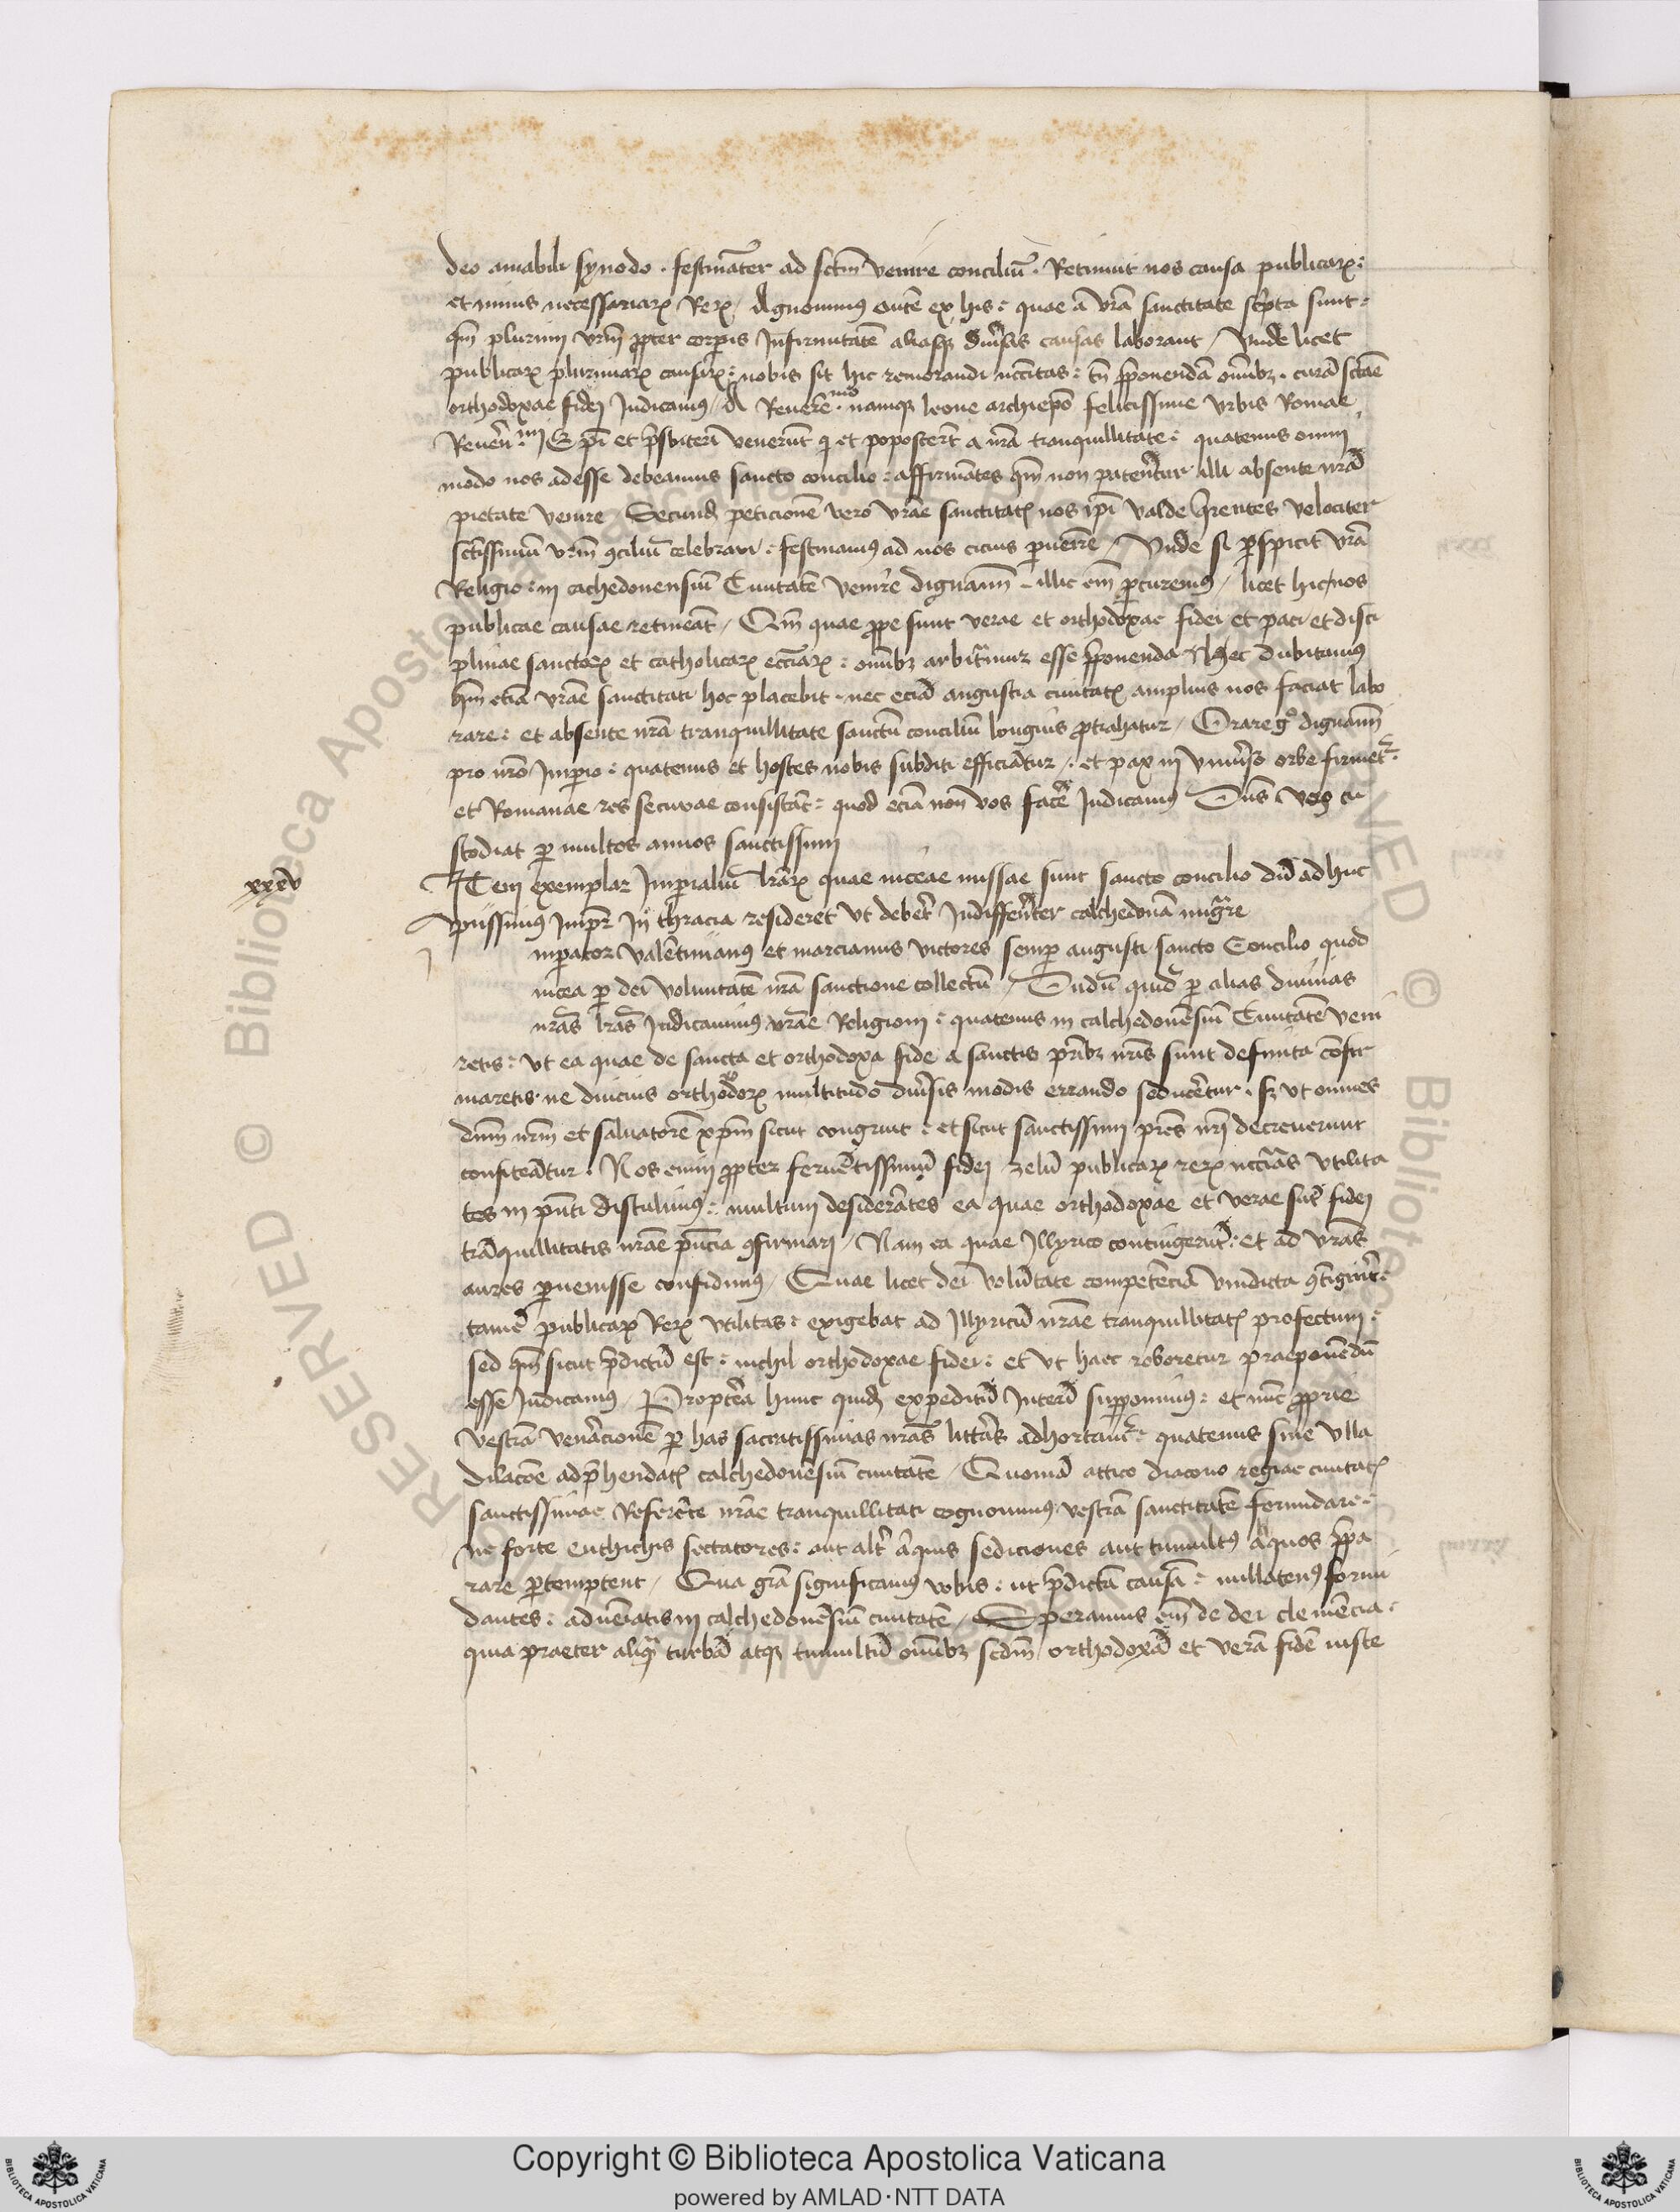 deo amabili synodo . festināter ad sctm̄ venire conciliū . Retinuit nos causa publicaꝝ :
et nimis necessariaꝝ Reꝝ / Agnouimꝰ autē ex his : quae a vrā sanctitate scͥpta sunt :
qm̄ plurimi vrm̄ ꝓpter corꝑis Infirmitatē aliasqꝫ diūsas causas laborant / Vnde licet
publicaꝝ plurimaꝝ causaꝝ : nobis sit hic remorandi nccitas : tn̄ p̄ponendā om̄ibꝫ . curā sctāe
orthodoxae fidei Iudicamꝰ / A Reuerē.ᵐᵒ namqꝫ leone archiepo felicissime vrbis Romae
Reuer̄.ᵐⁱ Epī et p̄sbiteri venerūt qͥ et poposcerт̄ a nrā tranquillitate : quatenus omni
modo nos adesse debeamus sancto concilio : affirmātes qm̄ non patenr̄tur illi absente nrā
pietate venire / Secundꝫ peticionē vero vrāe sanctitatꝭ nos ipī valde hr̄entes velociter
sctissimū vrm̄ ꝯciliū celebrari : festinamꝰ ad nos cicius ꝑuenire / Vnde si ꝑspicit vrā
Religio : in cachedonensiū Ciuitatē venire dignami͂ - illic em̄ ꝑcuremꝰ / licet hic nos
publicae causae retineāt / Qm̄ quae ꝓpe sunt verae et orthodoxae fidei et paci et disci
plinae sanctoꝝ et catholicaꝝ eccl̄iaꝝ : om̄ibꝫ arbitͣmur esse p̄ponenda Nec dubitamꝰ
qm̄ etiā vrāe sanctitati hoc placebit . nec eciā angustia ciuitatꝭ amplius nos faciat labo
rare : et absente nrā tranquillitate sanctū conciliū longius ꝓtrahatur / Orare gͦ dignami͂
pro nrō Imperio : quatenus et hostes nobis subditi efficiātur . et pax in vniūso orbe firmetͬ
et Romanae res securae consistāt : quod eciā non vos facē Iudicamꝰ Dn̄s vero cu
stodiat ꝑ multos annos sanctissimi
xxxv
ITem exemplar Imꝑialiū lrāꝝ quae niceae missae sunt sancto concilio dū adhuc
piissimꝰ Imꝑr In thracia resideret vt deber̄t Indiffen̄ter calchedonā migͣre
i
mꝑator valētinianꝰ et marcianus victores semꝑ augusti sancto Concilio quod
nicea ꝑ dei voluntatē nrā sanctione collectū / Dudū quidꝫ ꝑ alias diuinas
nrās lrās Iudicauimꝰ vrāe Religioni : quatenus in calchedonēsiū Ciuitatē veni
retis : vt ea quae de sancta et orthodoxa fide a sanctis pribꝫ nrīs sunt definita cōfir
maretis . ne diucius orthodoxoꝝ multitudo diūsis modis errando seducētur . sꝫ vt omnes
dnm̄ nrm̄ et saluatorē xpm̄ sicut congruit : et sicut sanctissimi pres̄ nrī decreuerunt
confiteātur . Nos enim ꝓpter feruētissimū fidei zelū publicaꝝ reꝝ nccīas vtilita
tes in pn̄ti distulimꝰ : multum desiderātes ea quae orthodoxae et verae sūt fidei
trāquillitatis nrāe pn̄cia ꝯfirmari / Nam ea quae Illyrico contingerūt : et ad vrās
aures ꝑuenisse confidimꝰ / Quae licet dei volūtate competēciā vindicta ꝯtigerīt :
tamē publicaꝝ Reꝝ vtilitas : exigebat ad Illyricū nrāe tranquillitatꝭ profectum :
sed qm̄ sicut p̄dictū est : nichil orthodoxae fidei : et vt haec roboretur praeponendū
esse Iudicamꝰ / Propterea hunc quidꝫ expeditū Interī supponimus : et nūc ꝓprie
vestrā venr̄acionē ꝑ has sacratissimas nrās littͤas adhortamͬ : quatenus sine vlla
dilacōe adp̄hendatꝭ calchedonēsiū ciuitatē / Quoniā attico diacono regiae ciuitatꝭ
sanctissimae Referēte nrāe tranquillitati cognouimus vestrā sanctitatē formidare :
ne forte euthichis sectatores : aut altͬ aͥquis sediciones aut tumultꝰ aͥquos p̄pa
rare ꝑtemptent / Qua gr̄a significamꝰ vobis : ut p̄dictā causā : nullatenꝰ formi
dantes : adueniatis in calchedonēsiū ciuitatē / Speramus em̄ de dei clemēcia .
quia praeter aliqͣ turbā atqꝫ tumultū om̄ibꝫ scdm̄ orthodoxā et verā fidē iuste
Copyright © Biblioteca Apostolica Vaticana
powered by AMLAD·NTT DATA